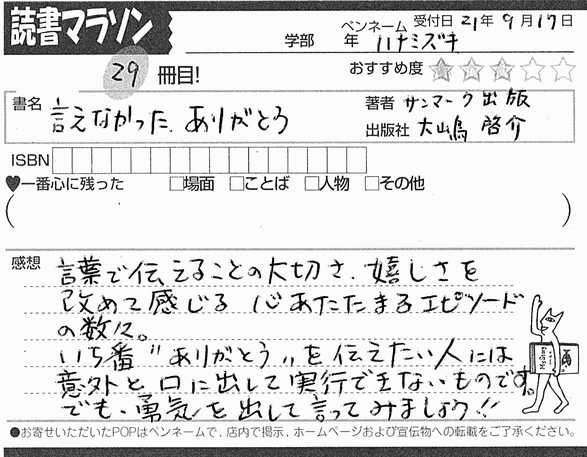 読書マラソン
学部 年 ペンネーム ハナミズキ 受付日 21年 9月 17日
29 冊目!
おすすめ度 ★★★☆☆
書名 言えなかった、ありがとう
著者 サンマーク出版
出版社 大嶋 啓介
ISBN
♥一番心に残った □場面 □ことば □人物 □その他
( )
感想 言葉で伝えることの大切さ、嬉しさを
改めて感じる 心あたたまるエピソード
の数々。
いち番〝ありがとう〟を伝えたい人には
意外と口に出して実行できないものです。
でも、勇気を出して言ってみましょう!!
●お寄せいただいたPOPはペンネームで、店内で掲示、ホームページおよび宣伝物への転載をご了承ください。